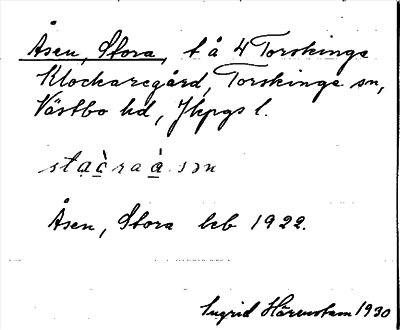 Åsen, Stora, t å 4 Torskinge
Klockaregård, Torskinge sn,
Västbo hd, Jkpgs l.
stạ̀c̀raạ̀sən
Åsen, Stora hcb 1922.
Ingrid Härenstam 1930